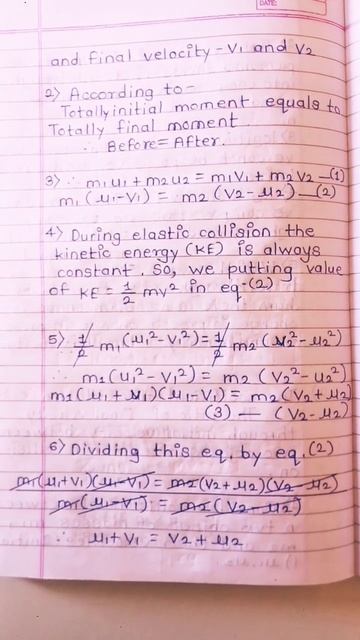 DATE:
and final velocity - v₁ and v₂
2) According to -
Totally initial moment equals to
Totally final moment
∴ Before = After.
3) ∵ m₁u₁ + m₂u₂ = m₁v₁ + m₂v₂ —(1)
m₁(u₁-v₁) = m₂(v₂-u₂) —(2)
4) During elastic collision the
kinetic energy (KE) is always
constant. So, we putting value
of KE = 1/2 mv² in eqⁿ(2)
5) 1/2 m₁(u₁²-v₁²) = 1/2 m₂(v₂²-u₂²)
∴ m₁(u₁²-v₁²) = m₂(v₂²-u₂²)
m₁(u₁+v₁)(u₁-v₁) = m₂(v₂+u₂)
(3) — (v₂-u₂)
6) Dividing this eq. by eq.(2)
m₁(u₁+v₁)(u₁-v₁) = m₂(v₂+u₂)(v₂-u₂)
m₁(u₁-v₁) = m₂(v₂-u₂)
∴ u₁+v₁ = v₂+u₂